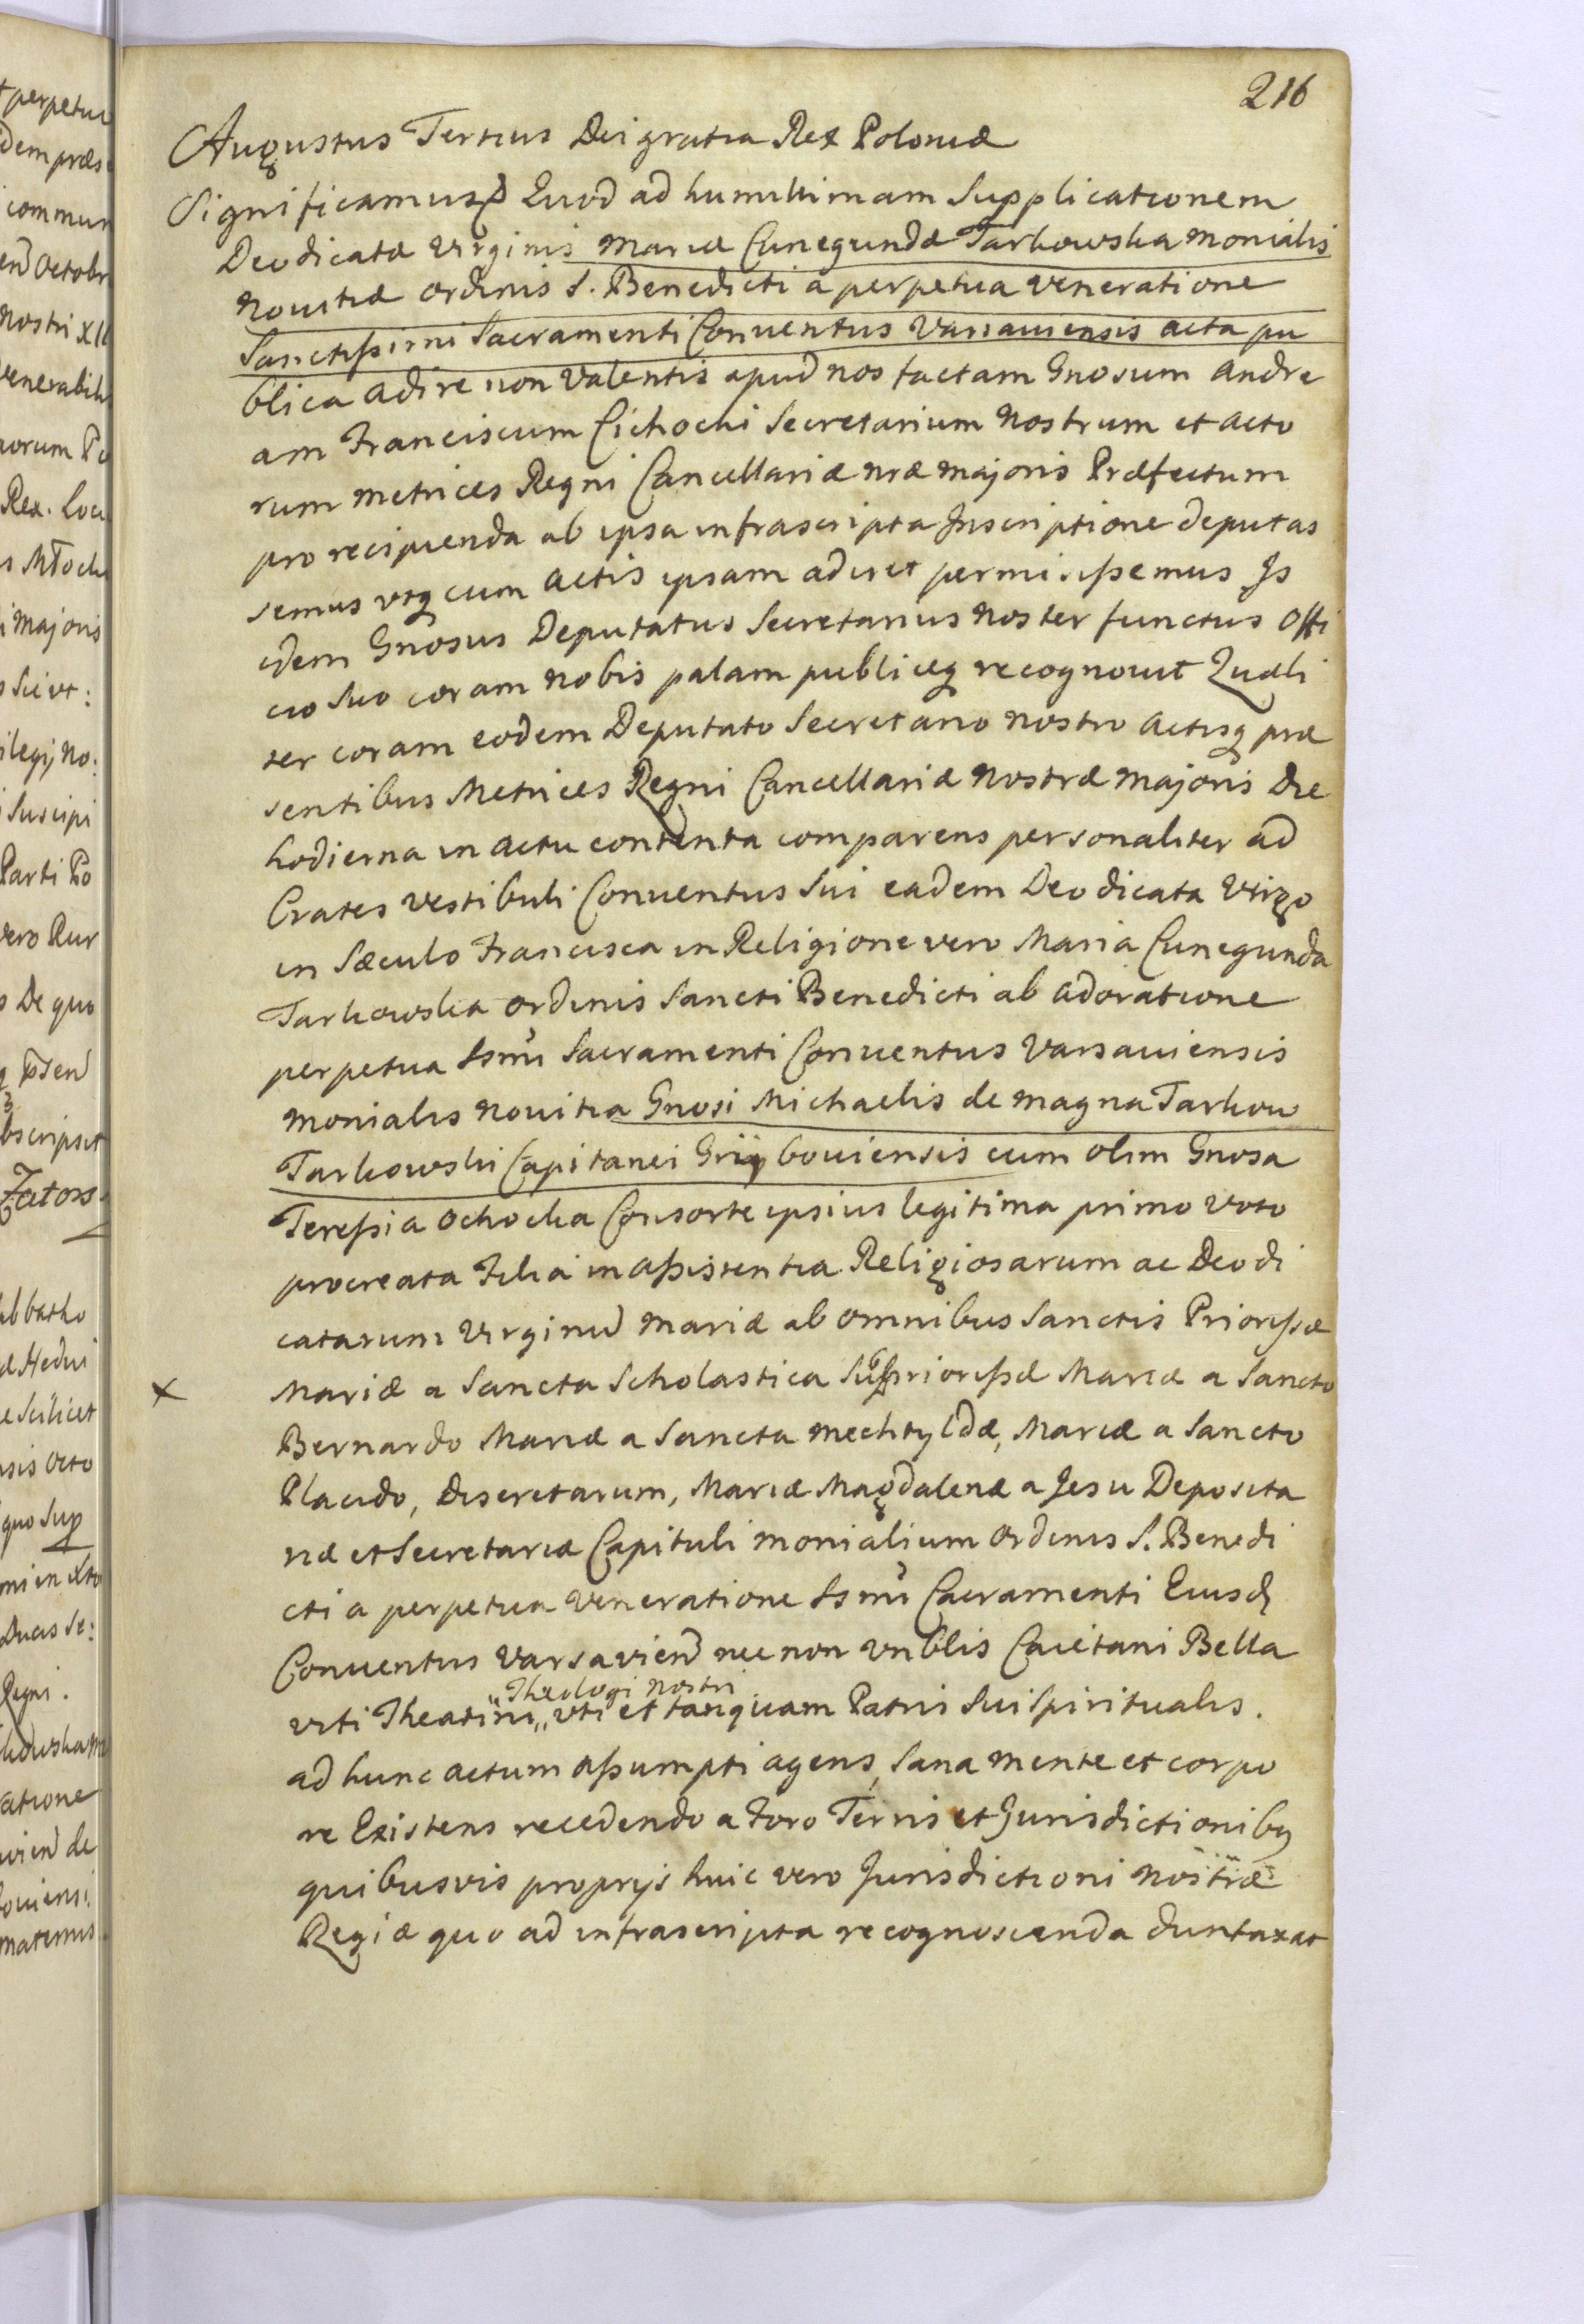 216
Augustus Tertius Dei gratia Rex Poloniæ
Significamus Quod ad humillimam Supplicationem
Deodicatæ Virginis Mariæ Cunegundæ Tarkowska Monialis
Novitiæ Ordinis S. Benedicti a perpetua veneratione
Sanctissimi Sacramenti Conventus Varsaviensis acta pu
blica adire non valentis apud nos factam Gnosum Andre
am Franciscum Cichocki Secretarium Nostrum et Acto
rum Metrices Regni Cancellariæ nræ Majoris Præfectum
pro recipienda ab ipsa infrascripta Inscriptione deputas
semus utq cum Actis ipsam adiret permisissemus Is
idem Gnosus Deputatus Secretarius Noster functus Offi
cio Suo coram Nobis palam publiceq recognovit Quali
ter coram eodem Deputato Secretario Nostro Actisq præ
sentibus Metrices Regni Cancellariæ Nostræ Majoris Die
hodierna in Actu contenta comparens personaliter ad
Crates Vestibuli Conventus Sui eadem Deodicata Virgo
in Sæculo Francisca in Religione vero Maria Cunegunda
Tarkowska Ordinis Sancti Benedicti ab Adoratione
perpetua Ssmi Sacramenti Conventus Varsaviensis
Monialis Novitia Gnosi Michaelis de Magna Tarkow
Tarkowski Capitanei Grijboviensis cum olim Gnosa
Teressia Ochocka Consorte ipsius legitima primo voto
procreata Filia in assistentia Religiosarum ac Deodi
catarum Virginum Mariæ ab Omnibus Sanctis Priorissæ
x Mariæ a Sancta Scholastica Suppriorissæ Mariæ a Sancto
Bernardo Mariæ a Sancta Mechtyldæ, Mariæ a Sancto
Placido, Discretarum, Mariæ Magdalenæ a Jesu Deposita
riæ et Secretariæ Capituli Monialium Ordinis S. Benedi
cti a perpetua Veneratione Ssmi Sacramenti Eiusd
Conventus Varsavien nec non Vnblis Caietani Bella
Theologi Nostri
viti Theatini uti et tanquam Patris Sui Spiritualis.
ad hunc actum assumpti agens, Sana mente et corpo
re Existens recedendo a Foro Terris et Jurisdictionibq
quibusvis proprijs huic vero Jurisdictioni Nostræ
Regiæ quo ad infrascripta recognoscenda duntaxat